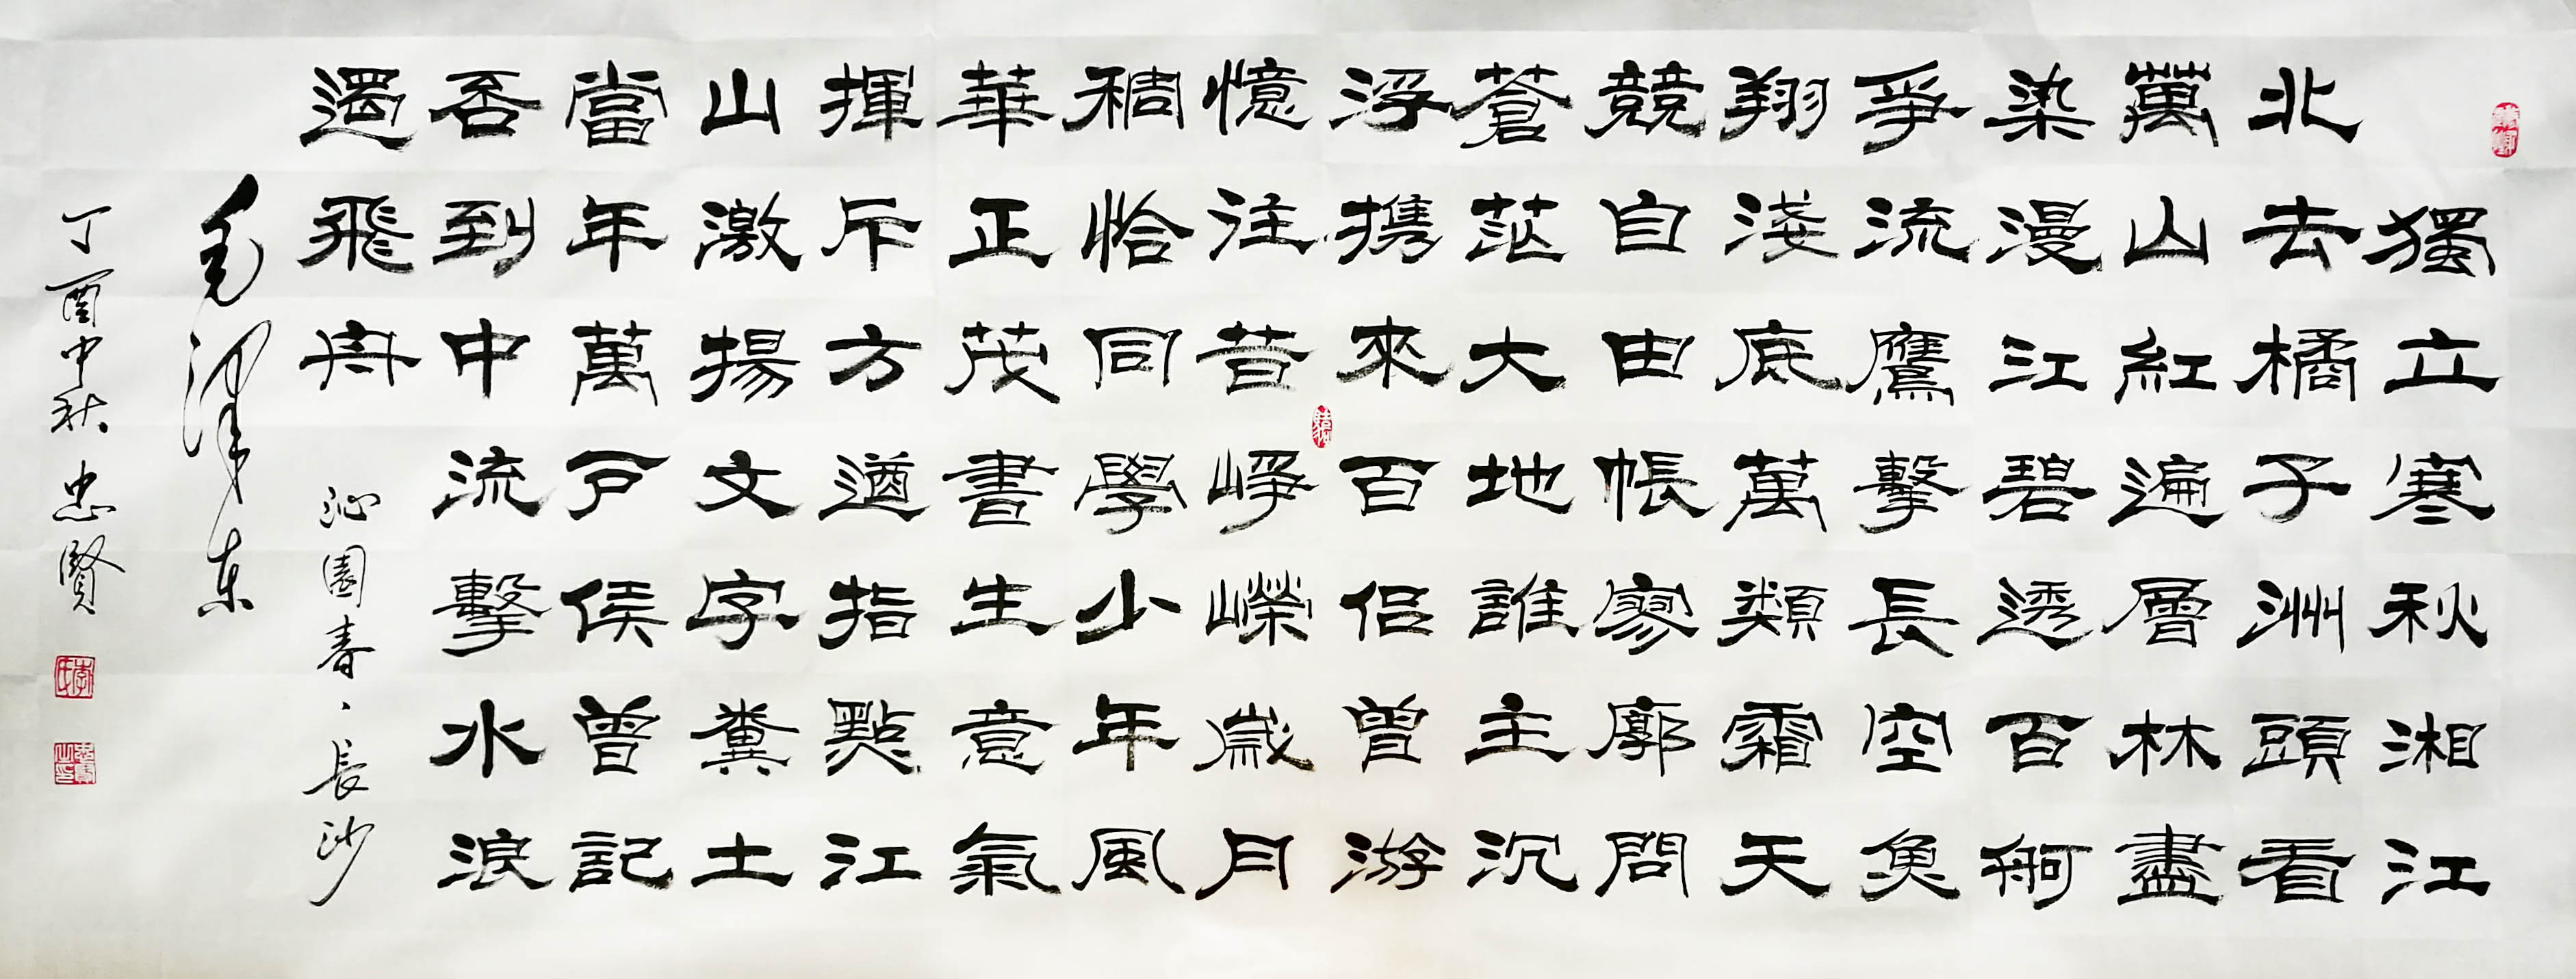 獨立寒秋湘江
北去橘子洲頭看
萬山紅遍層林盡
染漫江碧透百舸
爭流鷹擊長空魚
翔淺底萬類霜天
競自由帳寥廓問
蒼茫大地誰主沉
浮携來百侣曾游
憶往昔崢嶸歲月
稠恰同學少年風
華正茂書生意氣
揮斥方遒指點江
山激揚文字糞土
當年萬户侯曾記
否到中流擊水浪
遏飛舟
沁園春、長沙
毛泽东
丁酉中秋 忠賢